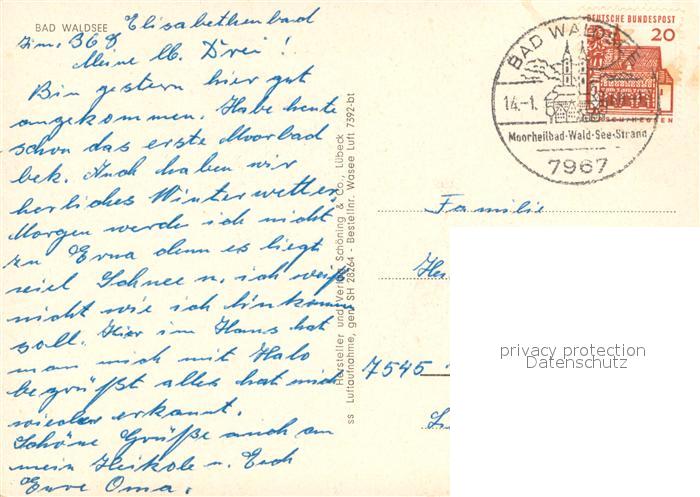 BAD WALDSEE Elisabethenbad
Zim. 368
Meine lb. Drei!
Bin gestern hier gut
angekommen. Habe heute
schon das erste Moorbad
bek. Auch haben wir
herliches Winterwetter,
Morgen werde ich nicht
zu Erna denn es liegt
viel Schnee u. ich weiß
nicht wie ich hinkommen
soll. Hier im Haus hat
man mich mit Halo
begrüßt alles hat mich
wieder erkannt.
Schöne Grüße auch an
mein Heikole u. Euch
Eure Oma.
Hersteller und Verlag Schöning & Co., Lübeck
ss Luftaufnahme, gen. SH 28264 - Bestellnr. Wasee Luft 7392-bt
DEUTSCHE BUNDESPOST
20
BAD WALDSEE
14.-1.
Moorheilbad-Wald-See-Strand
7967
Familie
7545
privacy protection
Datenschutz